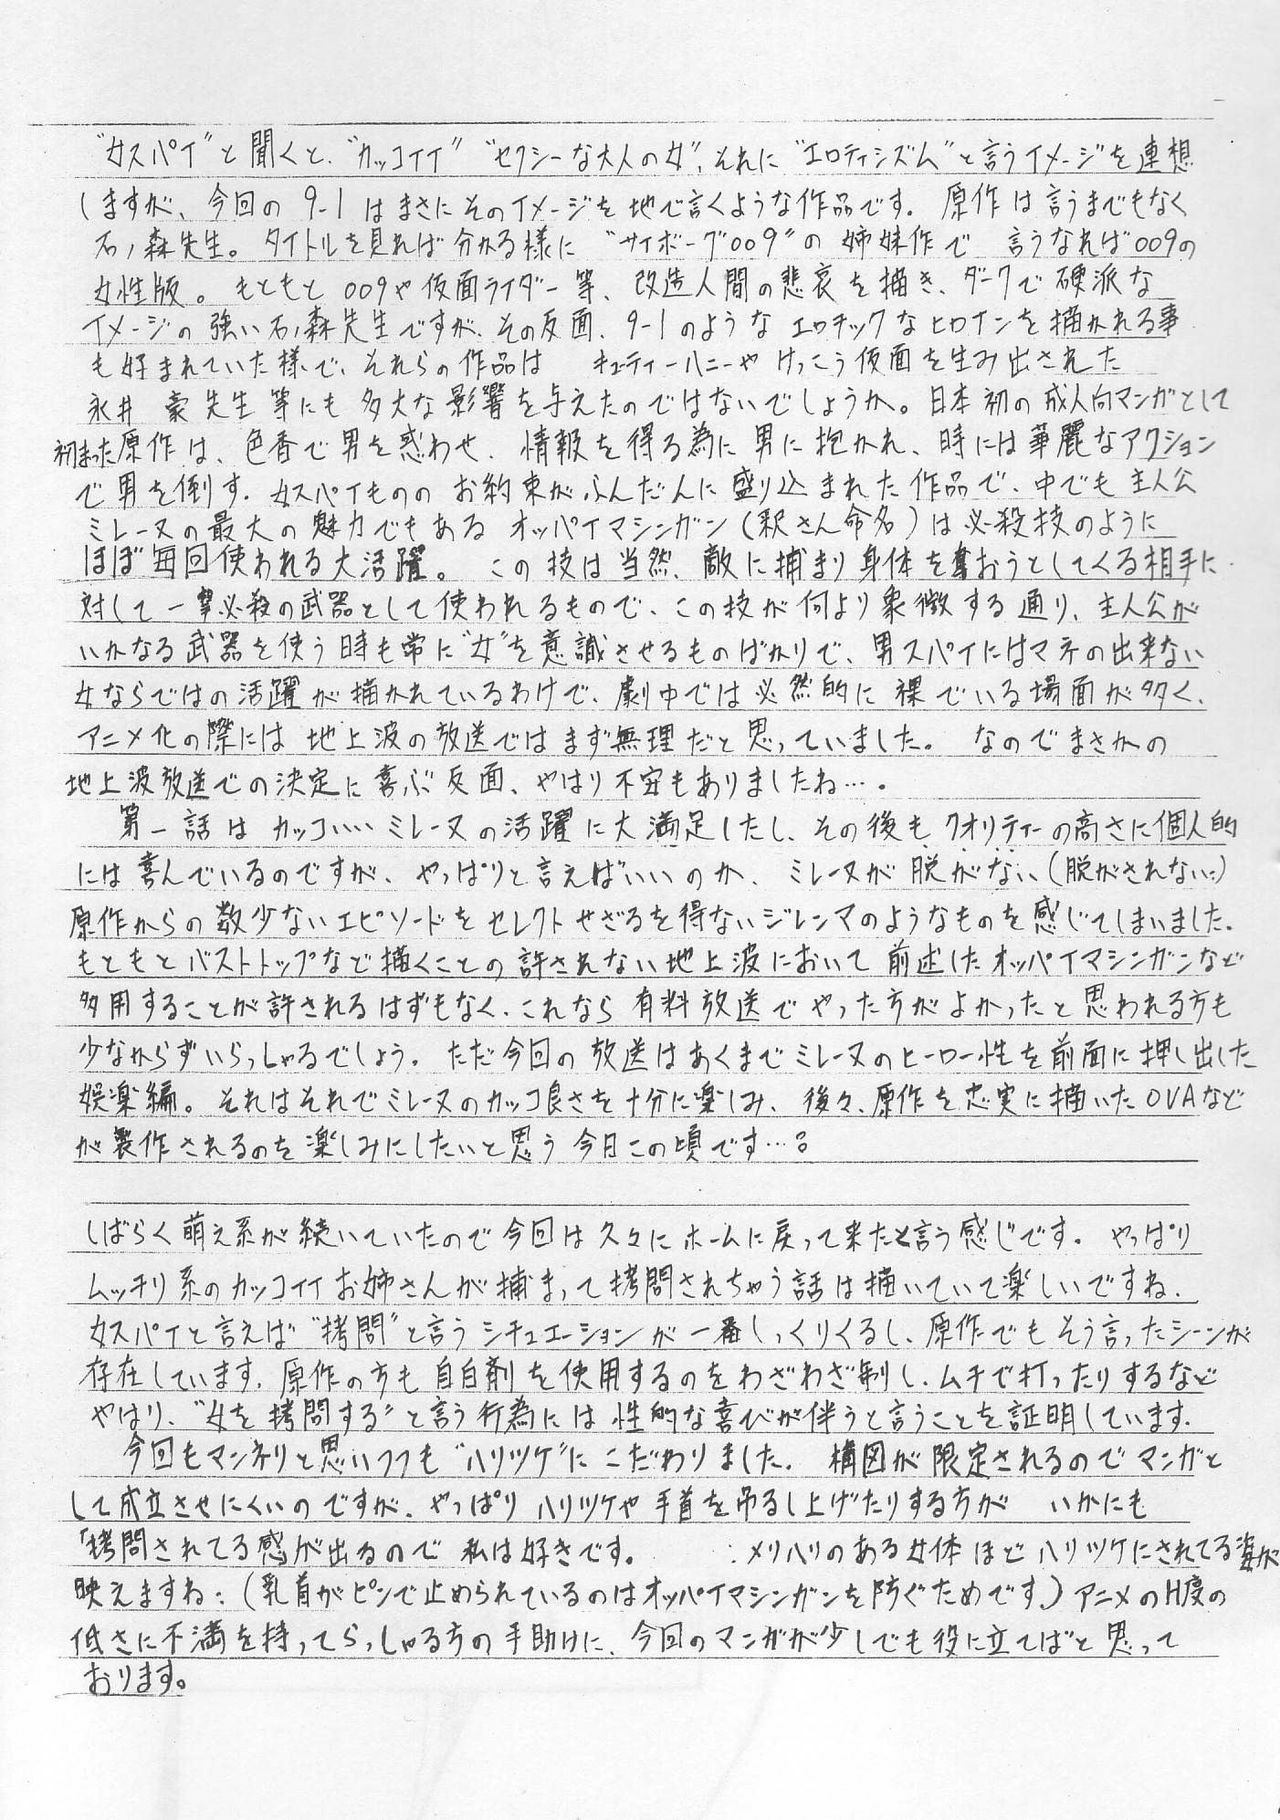 “女スパイ”と聞くと、“カッコイイ”“セクシーな大人の女”、それに“エロティシズム”と言うイメージを連想
しますが、今回の9-1はまさにそのイメージを地で言くような作品です。原作は言うまでもなく
石ノ森先生。タイトルを見れば分かる様に“サイボーグ009”の姉妹作で 言うなれば009の
女性版。もともと009や仮面ライダー等、改造人間の悲哀を描き、ダークで硬派な
イメージの強い石ノ森先生ですが、その反面、9-1のようなエロチックなヒロインを描かれる事
も好まれていた様で、それらの作品は キューティーハニーやけっこう仮面を生み出された
永井豪先生等にも多大な影響を与えたのではないでしょうか。日本初の成人向マンガとして
初まった原作は、色香で男を惑わせ、情報を得る為に男に抱かれ、時には華麗なアクション
で男を倒す、女スパイもののお約束がふんだんに盛り込まれた作品で、中でも主人公
ミレーヌの最大の魅力でもあるオッパイマシンガン(釈さん命名)は必殺技のように
ほぼ毎回使われる大活躍。 この技は当然、敵に捕まり身体を奪おうとしてくる相手に
対して一撃必殺の武器として使われるもので、この技が何より象徴する通り、主人公が
いかなる武器を使う時も常に“女”を意識させるものばかりで、男スパイにはマネの出来ない
女ならではの活躍が描かれているわけで、劇中では必然的に裸でいる場面が多く、
アニメ化の際には地上波の放送ではまず無理だと思っていました。 なのでまさかの
地上波放送での決定に喜ぶ反面、やはり不安もありましたね…。
第一話はカッコいいミレーヌの活躍に大満足したし、その後もクオリティーの高さに個人的
には喜んでいるのですが、やっぱりと言えばいいのか、ミレーヌが脱がない(脱がされない)
原作からの数少ないエピソードをセレクトせざるを得ないジレンマのようなものを感じてしまいました。
もともとバストトップなど描くことの許されない地上波において前述したオッパイマシンガンなど
多用することが許されるはずもなく、これなら有料放送でやった方がよかったと思われる方も
少なからずいらっしゃるでしょう。ただ今回の放送はあくまでミレーヌのヒーロー性を前面に押し出した
娯楽編。それはそれでミレーヌのカッコ良さを十分に楽しみ、後々、原作を忠実に描いたOVAなど
が製作されるのを楽しみにしたいと思う今日この頃です…。
しばらく萌え系が続いていたので今回は久々にホームに戻って来たと言う感じです。やっぱり
ムッチリ系のカッコイイお姉さんが捕まって拷問されちゃう話は描いていて楽しいですね。
女スパイと言えば“拷問”と言うシチュエーションが一番しっくりくるし、原作でもそう言ったシーンが
存在しています。原作の方も自白剤を使用するのをわざわざ制し、ムチで打ったりするなど
やはり、“女を拷問する”と言う行為には性的な喜びが伴うと言うことを証明しています。
今回もマンネリと思いつつも“ハリツケ”にこだわりました。構図が限定されるのでマンガと
して成立させにくいのですが、やっぱりハリツケや手首を吊るし上げたりする方が いかにも
「拷問されてる感が出るので私は好きです。 メリハリのある女体ほどハリツケにされてる姿が
映えますね:(乳首がピンで止められているのはオッパイマシンガンを防ぐためです)アニメのH度の
低さに不満を持ってらっしゃる方の手助けに、今回のマンガが少しでも役に立てばと思って
おります。